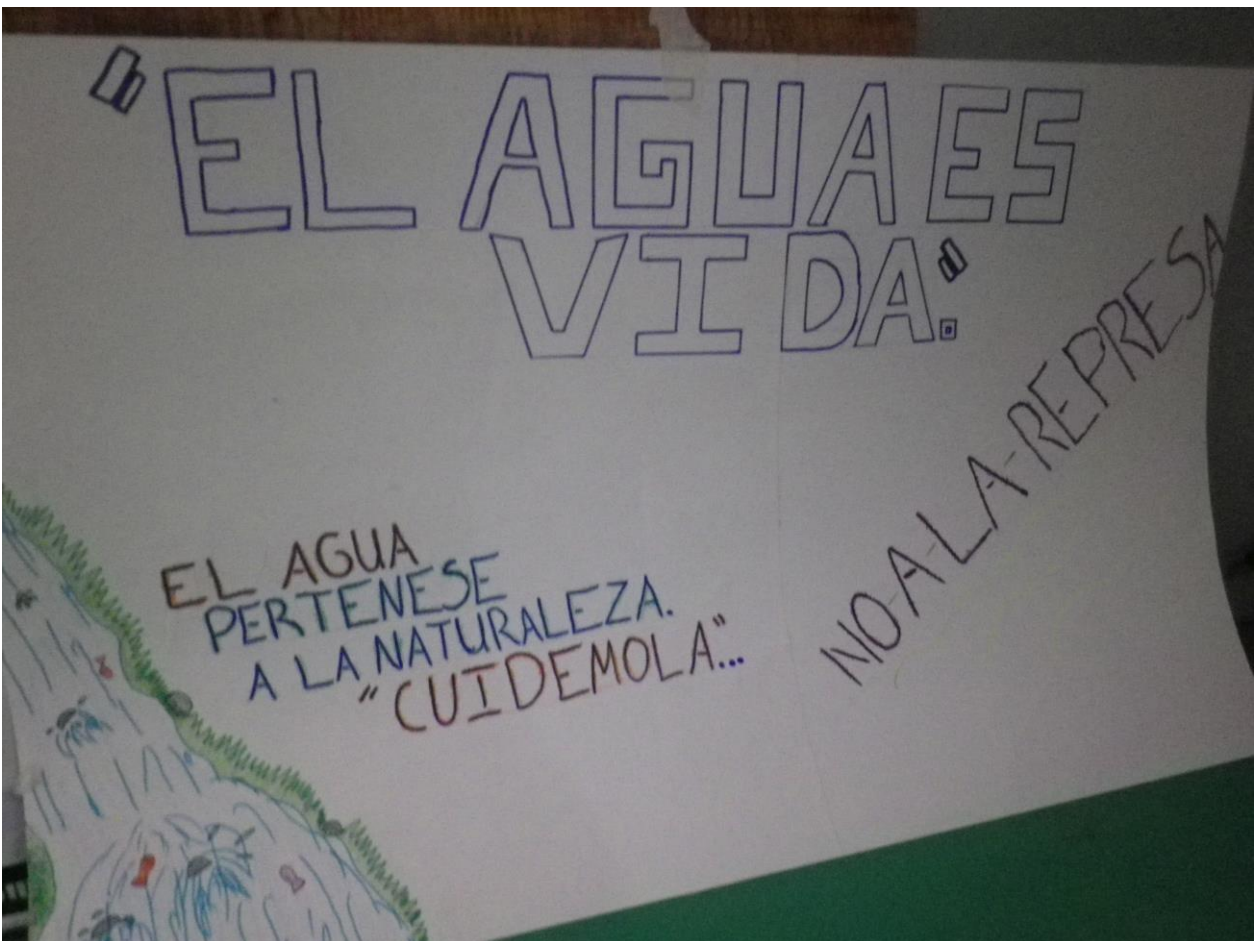 "EL AGUA ES
VIDA."
EL AGUA
PERTENESE
A LA NATURALEZA.
"CUIDEMOLA"...
NO-A-LA-REPRESA